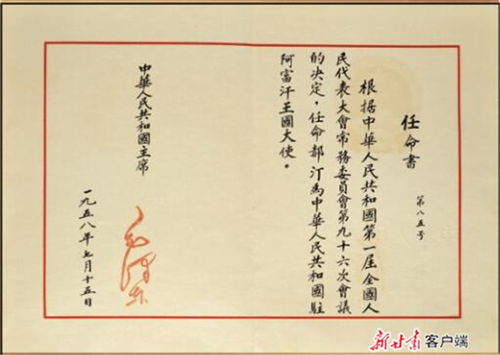 任命书
第八五号
根据中华人民共和國第一届全國人
民代表大會常務委員會第九十六次會議
的决定，任命郝汀為中华人民共和國駐
阿富汗王國大使。
中華人民共和國主席
毛澤东
一九五八年七月十五日
新甘肃客户端